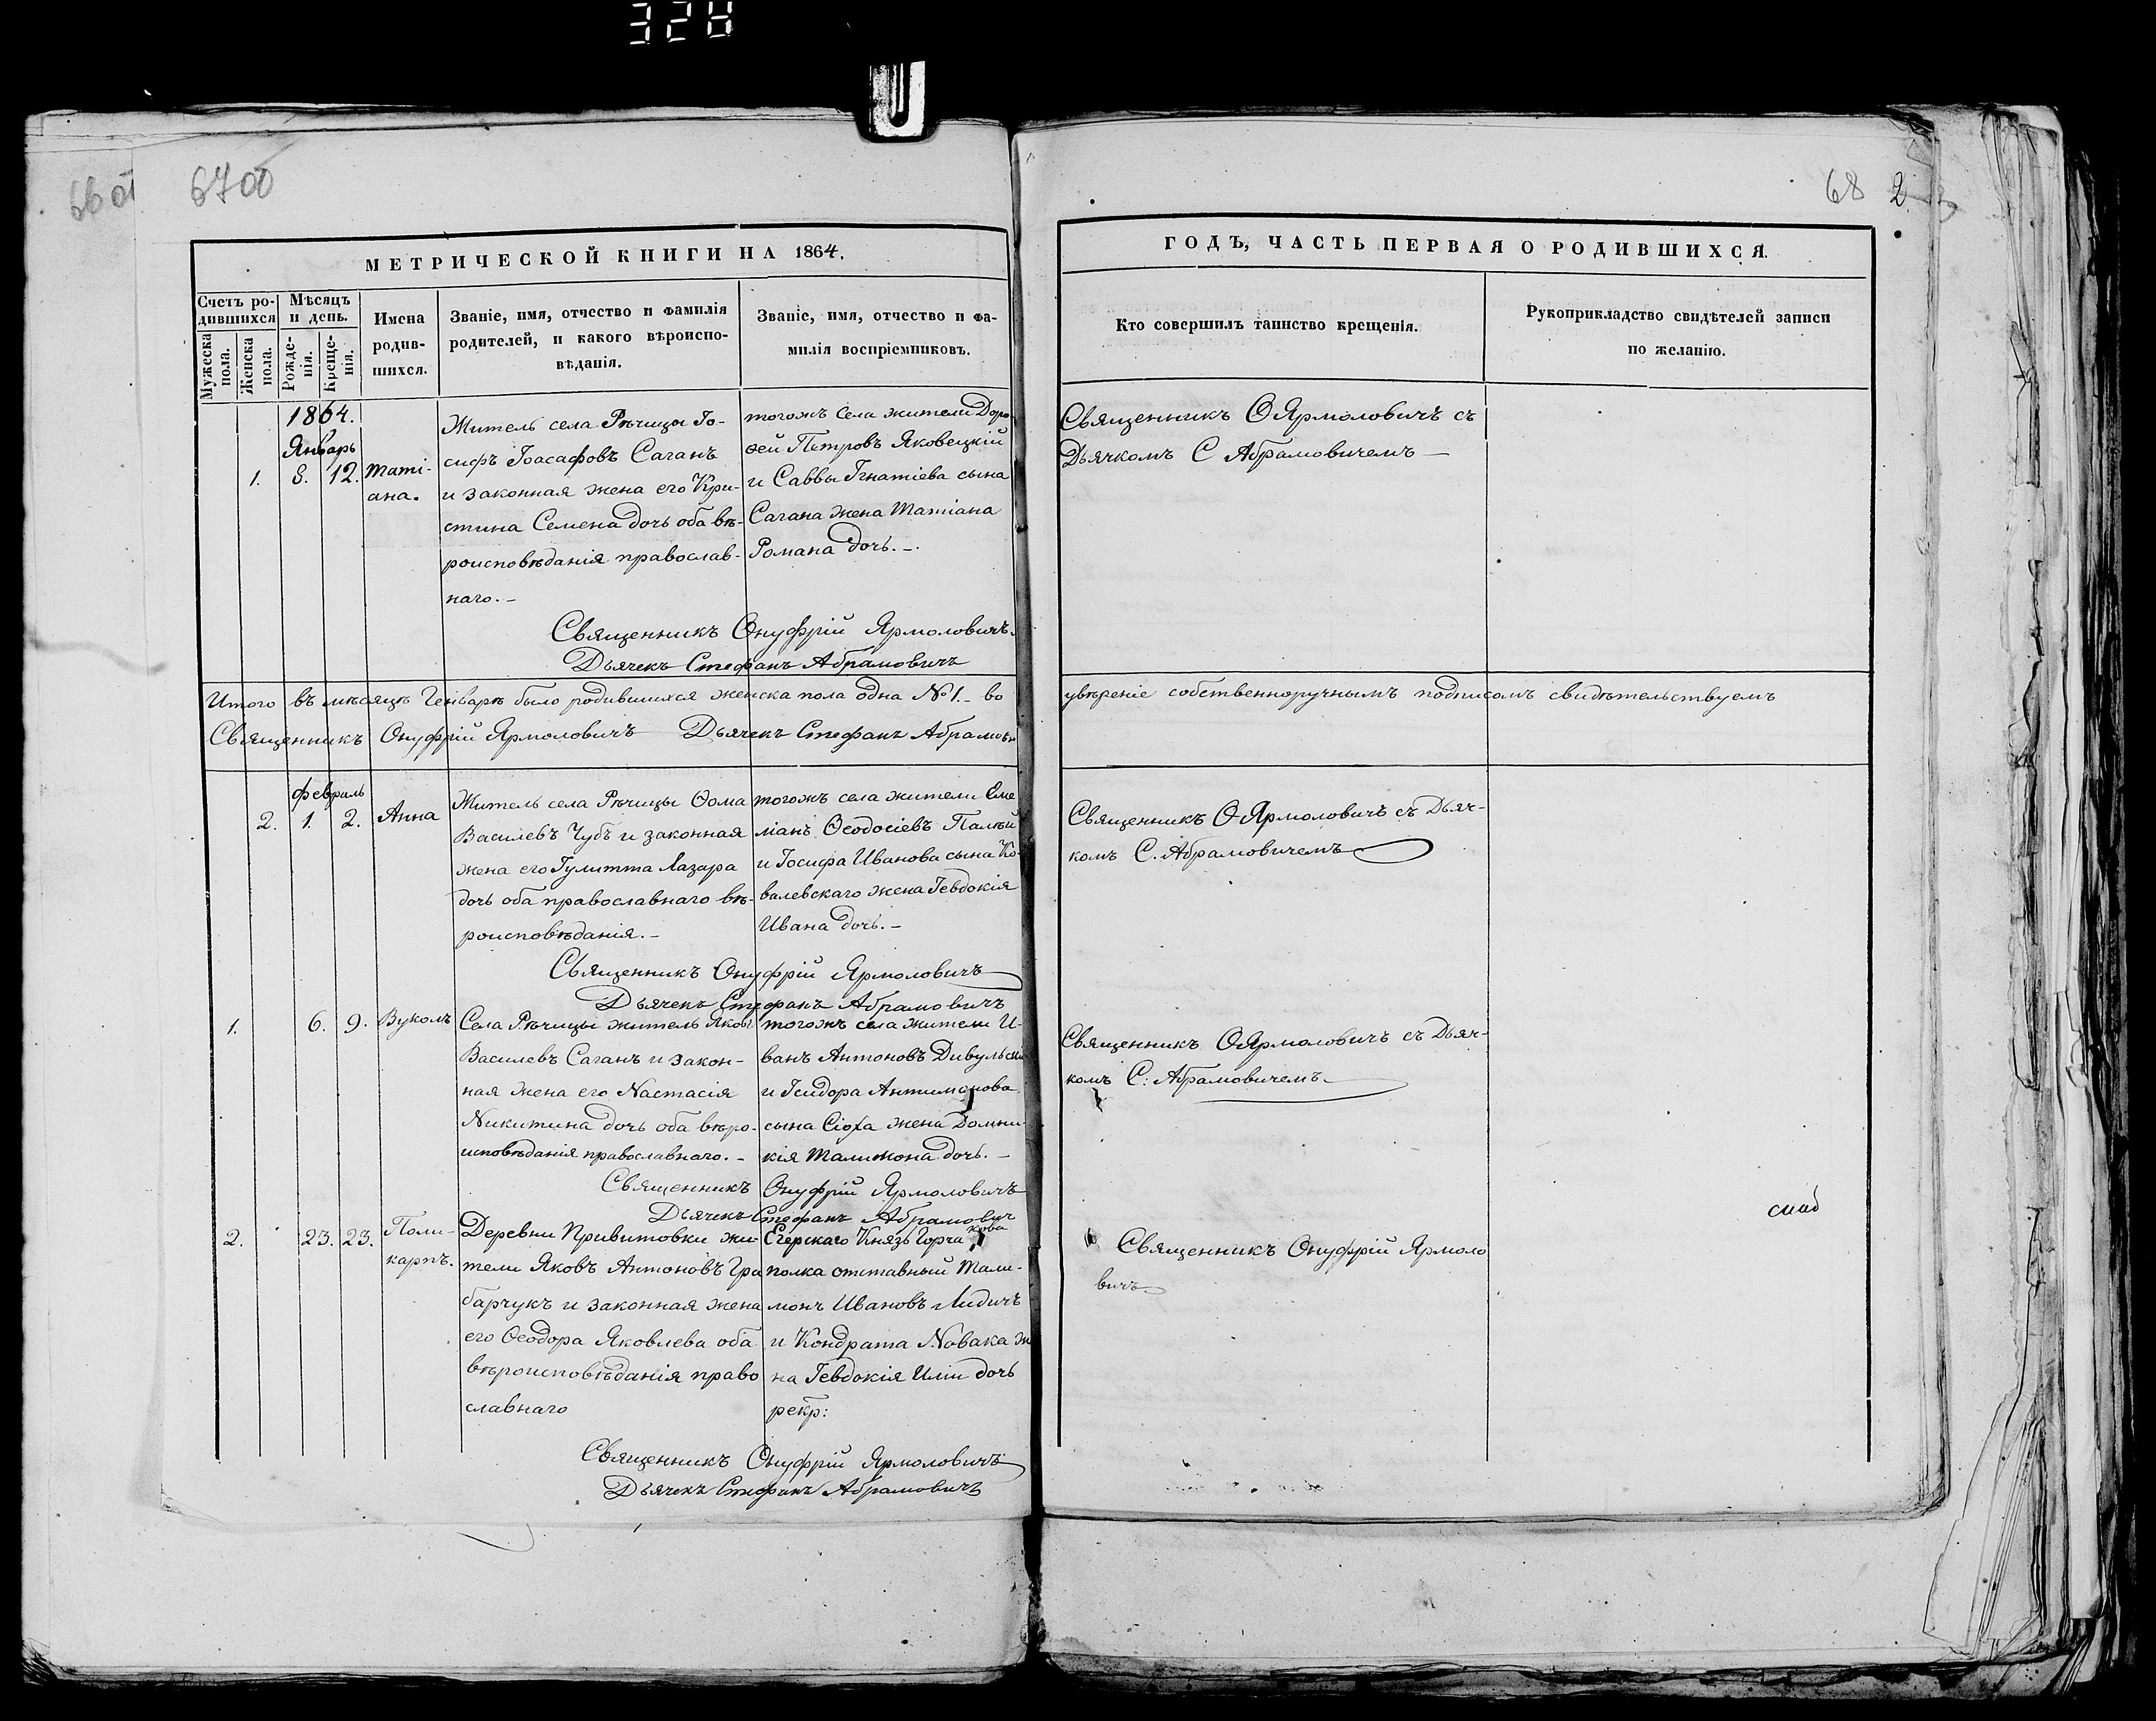 328
66об
67об
68
2
МЕТРИЧЕСКОЙ КНИГИ НА 1864.
ГОДЪ, ЧАСТЬ ПЕРВАЯ О РОДИВШИХСЯ.
Счетъ ро-
дившихся
Мужеска
пола.
Женска
пола.
Мѣсяцъ
и день.
Рожде-
нія.
Креще-
нія.
Имена
родив-
шихся.
Званіе, имя, отчество и фамилія
родителей, и какого вѣроиспо-
вѣданія.
Званіе, имя, отчество и фа-
милія воспріемниковъ.
Кто совершилъ таинство крещенія.
Рукоприкладство свидѣтелей записи
по желанію.
1864.
Январь
1. 8. 12. Маті-
ана.
Житель села Рѣчицы Іо-
сифъ Іоасафовъ Саганъ
и законная жена его Кри-
стина Семена дочь оба вѣ-
роисповѣданія православ-
наго. -
тогожъ села жители Доро-
фей Петровъ Яковецкій
и Саввы Игнатіева сына
Сагана жена Татіана
Романа дочь. -
Священникъ О Ярмоловичъ съ
Дьячкомъ С Абрамовичемъ —
Священникъ Онуфрій Ярмоловичъ.
Дьячекъ Стефанъ Абрамовичъ
Итого въ мѣсяцѣ Генварѣ было родившихся женска пола одна №1. - во
увѣреніе собственноручнымъ подписомъ свидѣтельствуемъ
Священникъ Онуфрій Ярмоловичъ Дьячекъ Стефанъ Абрамович
Февраль
2. 1. 2. Анна
Житель села Рѣчицы Ѳома
Василевъ Чубъ и законная
жена его Гулитта Лазара
дочь оба православнаго вѣ-
роисповѣданія. -
тогожъ села жители Еме
ліанъ Ѳеодосіевъ Палѣй
и Іосифа Иванова сына Ко-
валевскаго жена Іевдокія
Ивана дочь. -
Священникъ О Ярмоловичъ съ Дьяч-
комъ С. Абрамовичемъ
Священникъ Онуфрій Ярмоловичъ
Дьячекъ Стефанъ Абрамовичъ
1. 6. 9. Вуколъ
Села Рѣчицы житель Яковъ
Василевъ Саганъ и закон-
ная жена его Настасія
Никитина дочь оба вѣро-
исповѣданія православнаго. -
тогожъ села жители И-
ванъ Антоновъ Дивульскі
и Ісидора Антимонова
сына Сіоха жена Домни-
кіяТалимона дочь. -
Священникъ О Ярмоловичъ съ Дьяч-
комъ С: Абрамовичемъ.
Священникъ Онуфрій Ярмоловичъ
Дьячекъ Стефанъ Абрамович
2. 23. 23. Поли-
карпъ.
Деревни Привитовки жи-
тели Яковъ Антоновъ Гри
барчукъ и законная жена
его Ѳеодора Яковлева оба
вѣроисповѣданія право
славнаго
Егерскаго Князь Горчакова
полка отставный Тали-
монъ Ивановъ Лидичъ
и Кондрата Новака же
на Іевдокія Иліи дочь
рекр:
Священникъ Онуфрій Ярмоло
вичъ
Священникъ Онуфрій Ярмоловичъ
Дьячекъ Стефанъ Абрамовичъ